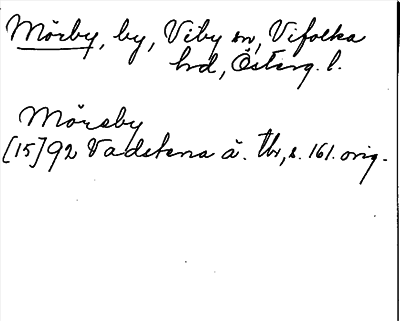 Mörby, by, Viby sn, Vifolka
hd, Österg. l.
Mörsby
[15]92 Vadstena ä. tb, s. 161. orig.